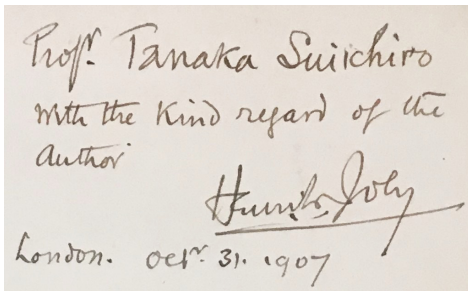 Profr. Tanaka Suiichiro
with the Kind regard of the
Author
Henri L. Joly
London. Octr. 31. 1907